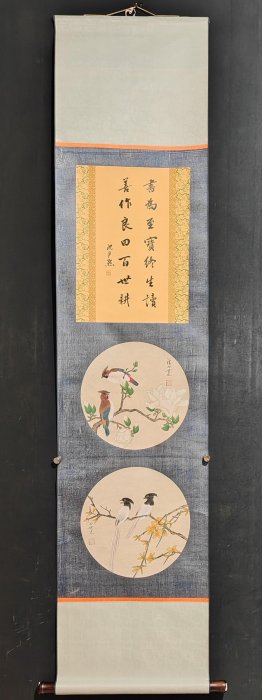 書為至寶終生讀
善作良田百世耕
沈尹默